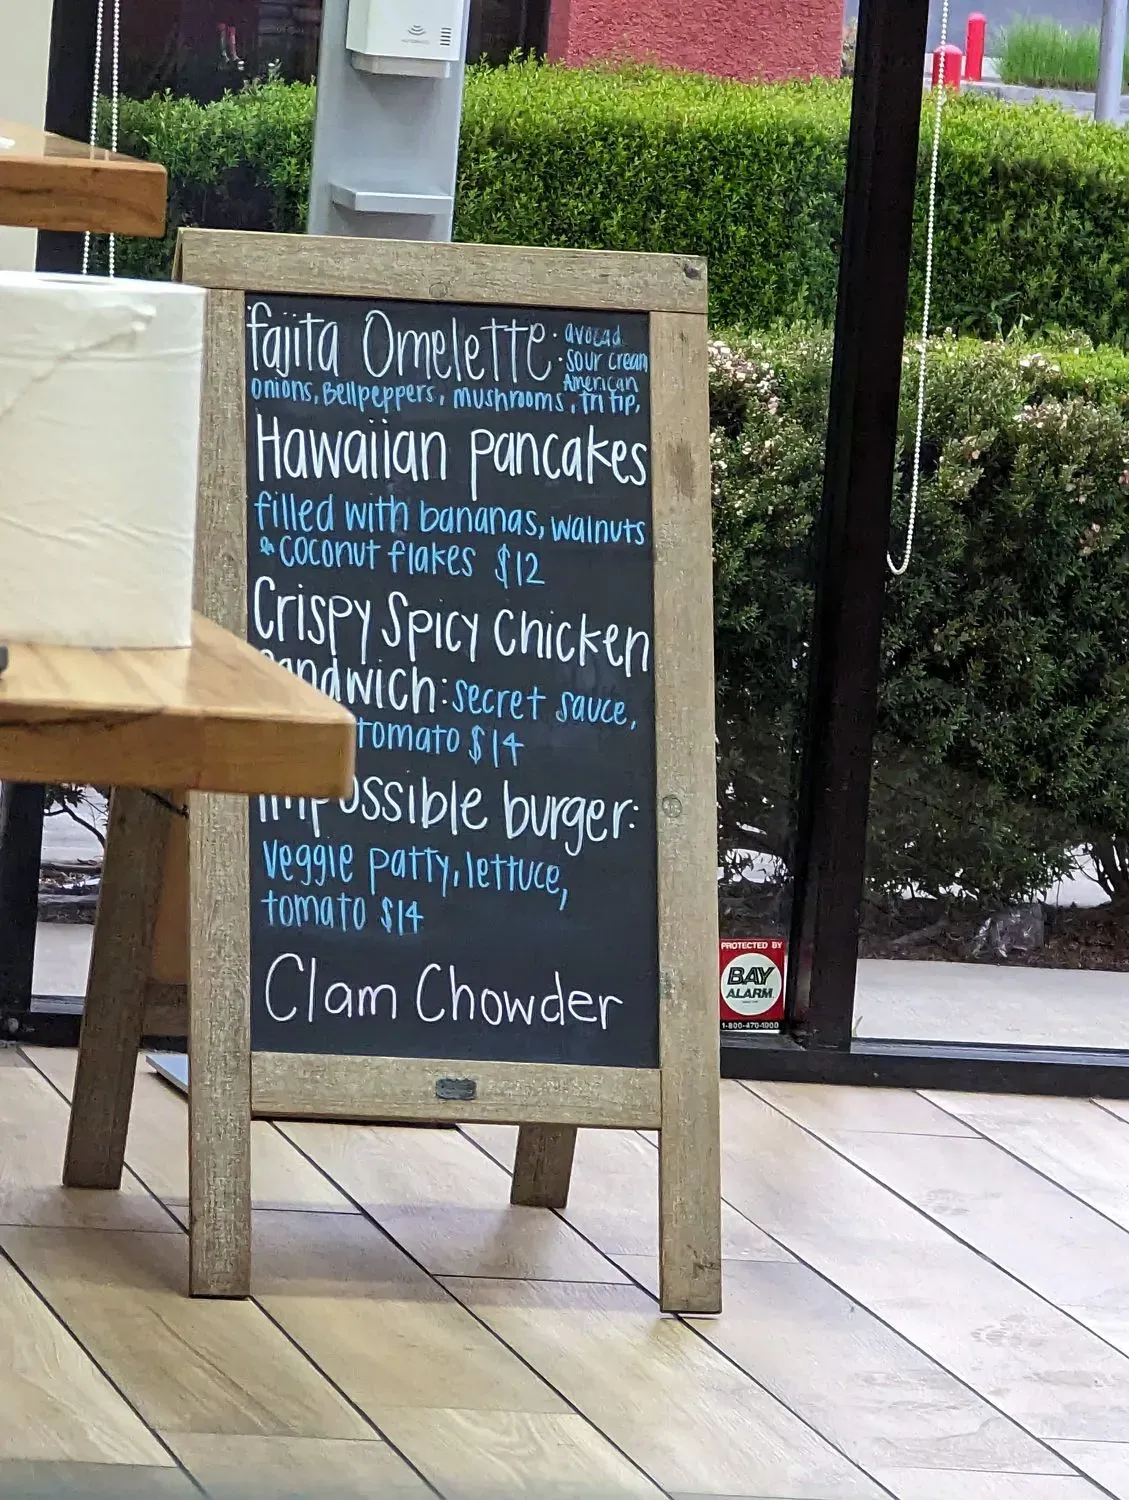 fajita Omelette · avocad
· sour cream
American
onions, Bellpeppers, mushrooms, tri tip,
Hawaiian pancakes
filled with bananas, walnuts
& coconut flakes $12
Crispy Spicy Chicken
andwich: secret sauce,
tomato $14
Impossible burger:
Veggie patty, lettuce,
tomato $14
Clam Chowder
PROTECTED BY
BAY
ALARM
1-800-470-1000